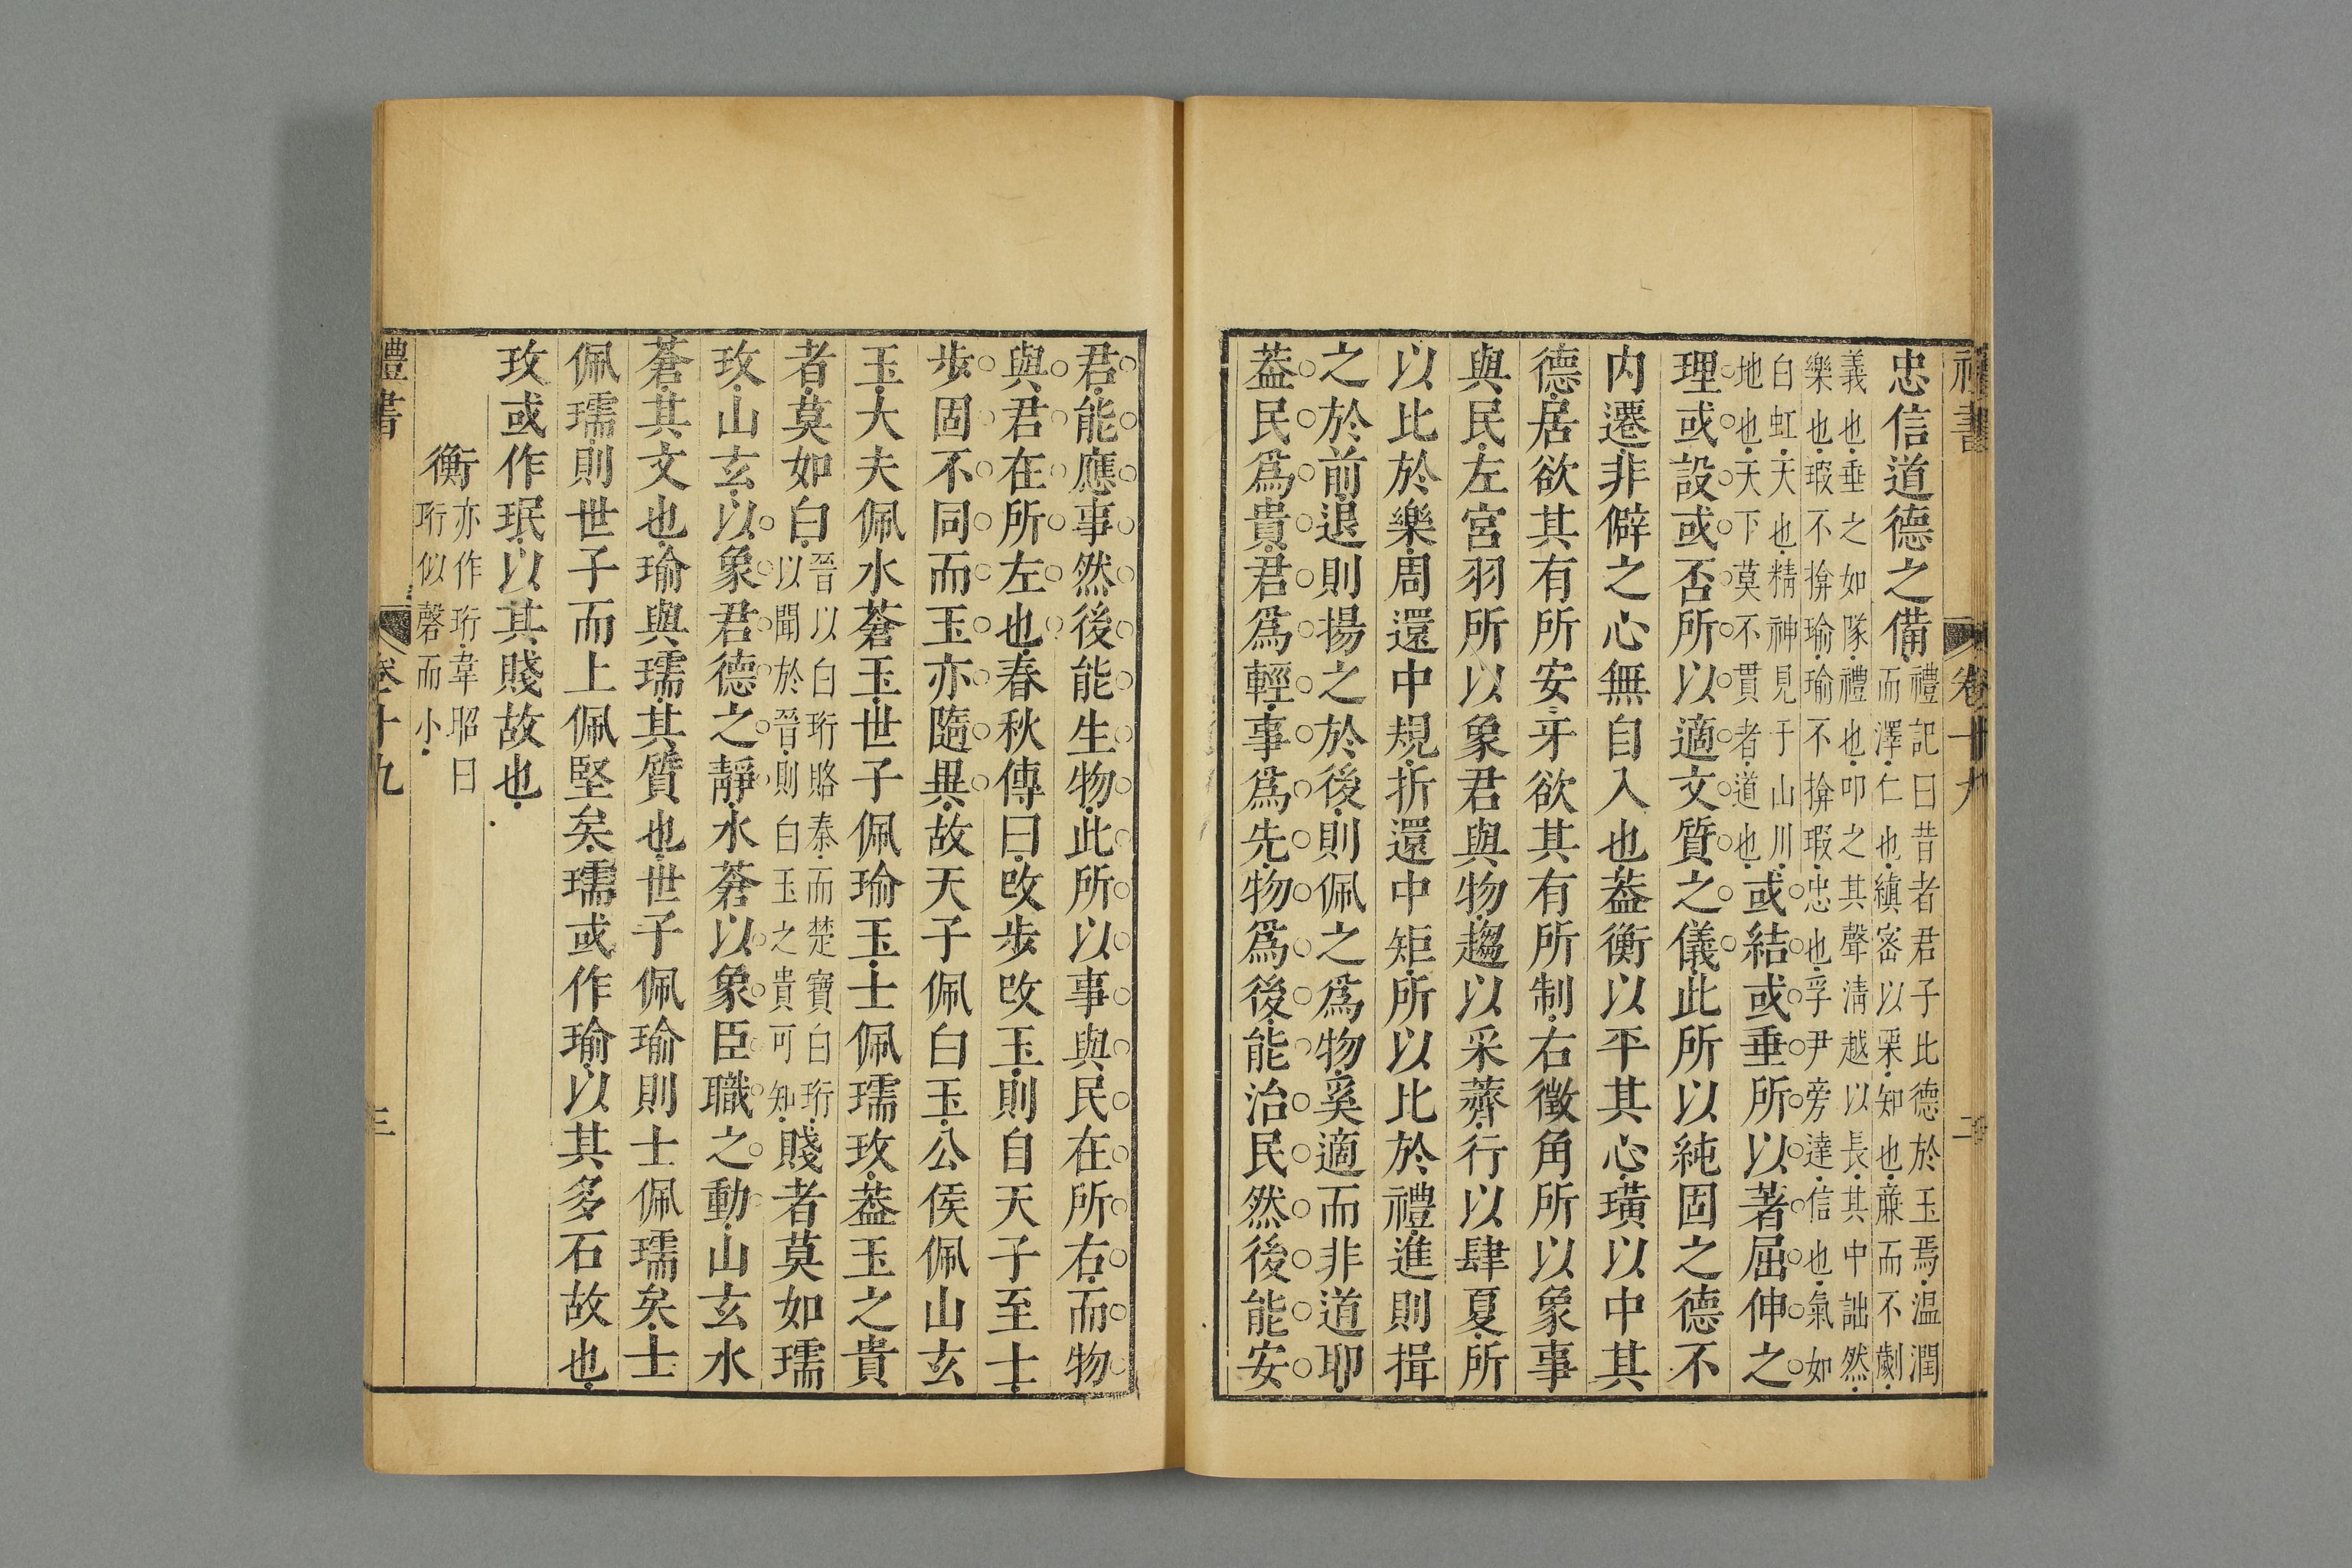 禮書 卷十九 二
忠信道德之備禮記曰昔者君子比德於玉焉温潤而澤仁也縝密以栗知也廉而不劌
義也垂之如隊禮也叩之其聲淸越以長其中詘然樂也瑕不揜瑜瑜不揜瑕忠也孚尹旁達信也氣如
白虹天也精神見于山川地也天下莫不貴者道也或結或垂所以著屈伸之
理或設或否所以適文質之儀此所以純固之德不
内遷非僻之心無自入也葢衡以平其心璜以中其
德居欲其有所安牙欲其有所制右徵角所以象事
與民左宮羽所以象君與物趨以采薺行以肆夏所
以比於樂周還中規折還中矩所以比於禮進則揖
之於前退則揚之於後則佩之爲物奚適而非道耶
葢民爲貴君爲輕事爲先物爲後能治民然後能安
君能應事然後能生物此所以事與民在所右而物
與君在所左也春秋傳曰改步改玉則自天子至士
步固不同而玉亦隨異故天子佩白玉公侯佩山玄
玉大夫佩水蒼玉世子佩瑜玉士佩瓀玫葢玉之貴
者莫如白晉以白珩賂秦而楚寶白珩以聞於晉則白玉之貴可知賤者莫如瓀
玫山玄以象君德之靜水蒼以象臣職之動山玄水
蒼其文也瑜與瓀其質也世子佩瑜則士佩瓀矣士
佩瓀則世子而上佩堅矣瓀或作瑜以其多石故也
玫或作珉以其賤故也
衡亦作珩韋昭曰珩似磬而小
禮書 卷十九 三